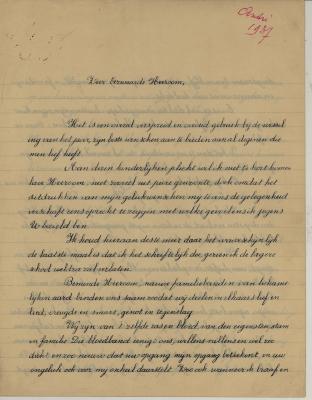 André
1937
Zeer Eerwaarde Heeroom,
Het is een overal verspreid en overoud gebruik bij de wissel
ing van het jaar, zijn beste wenschen aan te bieden aan al degenen die
men lief heeft.
Aan dezen kinderlijken plicht wil ik niet te kort komen
laar Heeroom, niet zoozeer uit pure gewoonte, doch omdat het
uitdrukken van mijn gelukwenschen mij tevens de gelegenheid
verschaft eens oprecht te zeggen met welke gevoelens ik jegens
U bezield ben.
Ik houd hieraan des te meer daar het waarschijnlijk
de laatste maal is dat ik het schriftelijk doe, gezien ik de lagere
school weldra zal verlaten.
Beminde Heeroom, nauwe familiebanden van lichame
lijken aard binden ons saam zoodat wij deelen in elkaars lief en
leed, vreugde en smart, genot en tegenslag.
Wij zijn van 't zelfde ras en bloed, van den eigensten stam
en familie. Die bloedband eenigt ons, willens nillens en wel zoo
dicht en zoo nauw dat uw opgang mijn opgang beteekent, en uw
ongeluk ook voor mij onheil daarstelt. Zoo ook wanneer ik bezig en